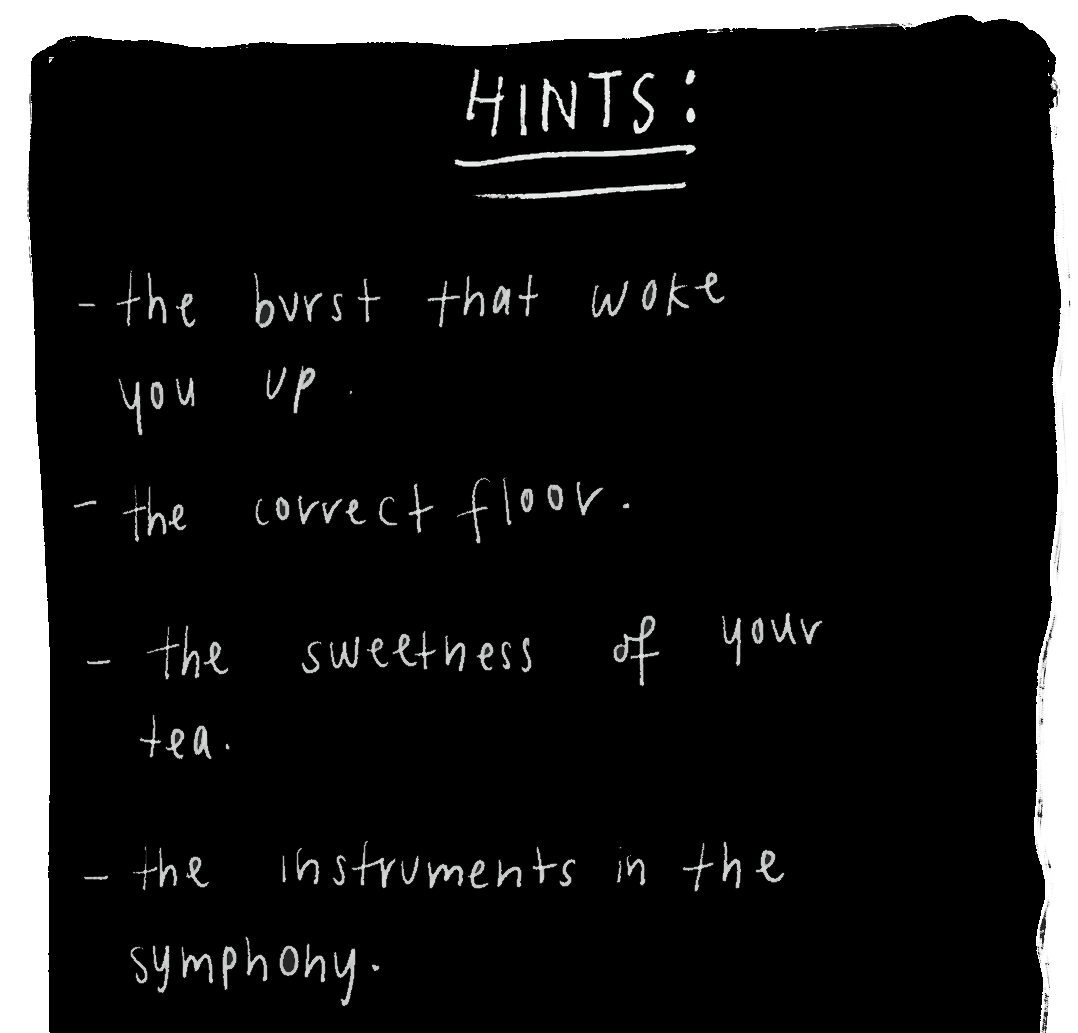 HINTS:
- the burst that woke
you up.
- the correct floor.
- the sweetness of your
tea.
- the instruments in the
symphony.